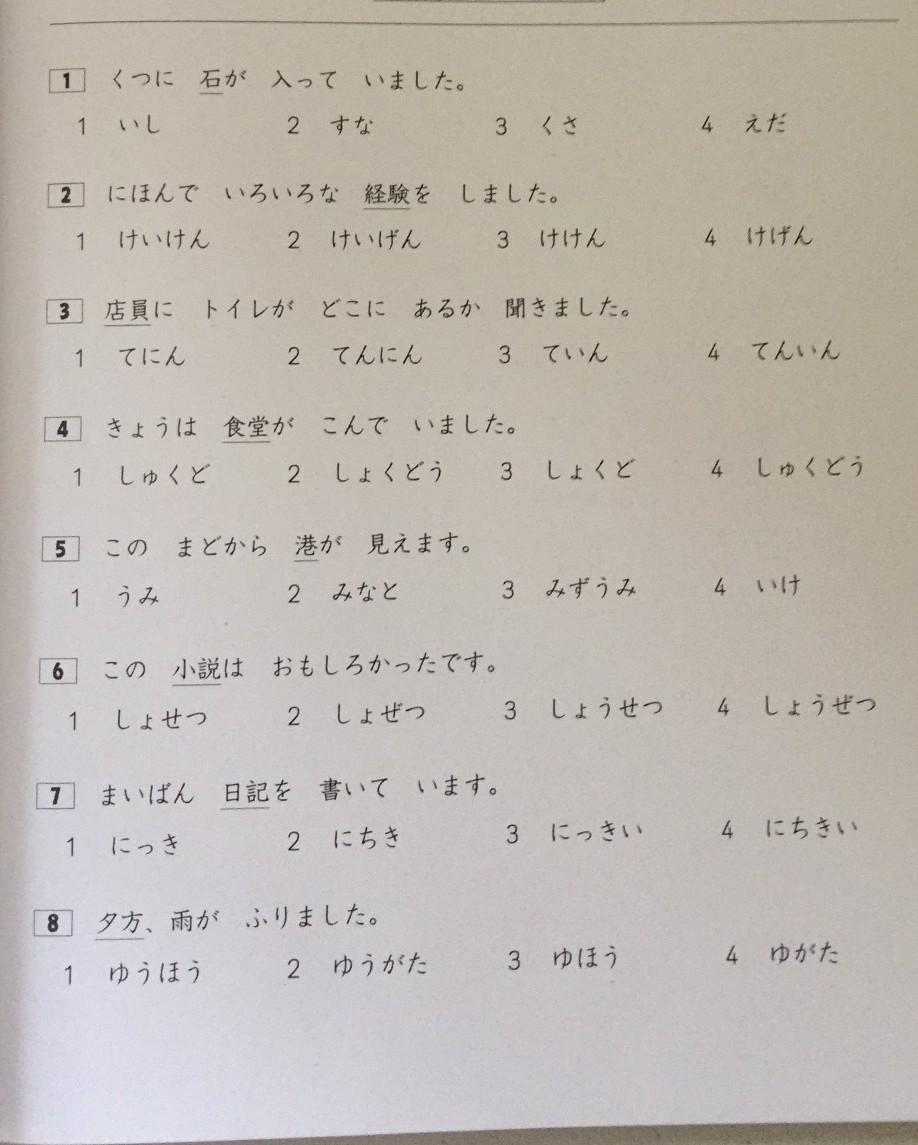 1 くつに 石が 入って いました。
1 いし 2 すな 3 くさ 4 えだ
2 にほんで いろいろな 経験を しました。
1 けいけん 2 けいげん 3 けけん 4 けげん
3 店員に トイレが どこに あるか 聞きました。
1 てにん 2 てんにん 3 ていん 4 てんいん
4 きょうは 食堂が こんで いました。
1 しゅくど 2 しょくどう 3 しょくど 4 しゅくどう
5 この まどから 港が 見えます。
1 うみ 2 みなと 3 みずうみ 4 いけ
6 この 小説は おもしろかったです。
1 しょせつ 2 しょぜつ 3 しょうせつ 4 しょうぜつ
7 まいばん 日記を 書いて います。
1 にっき 2 にちき 3 にっきい 4 にちきい
8 夕方、雨が ふりました。
1 ゆうほう 2 ゆうがた 3 ゆほう 4 ゆがた